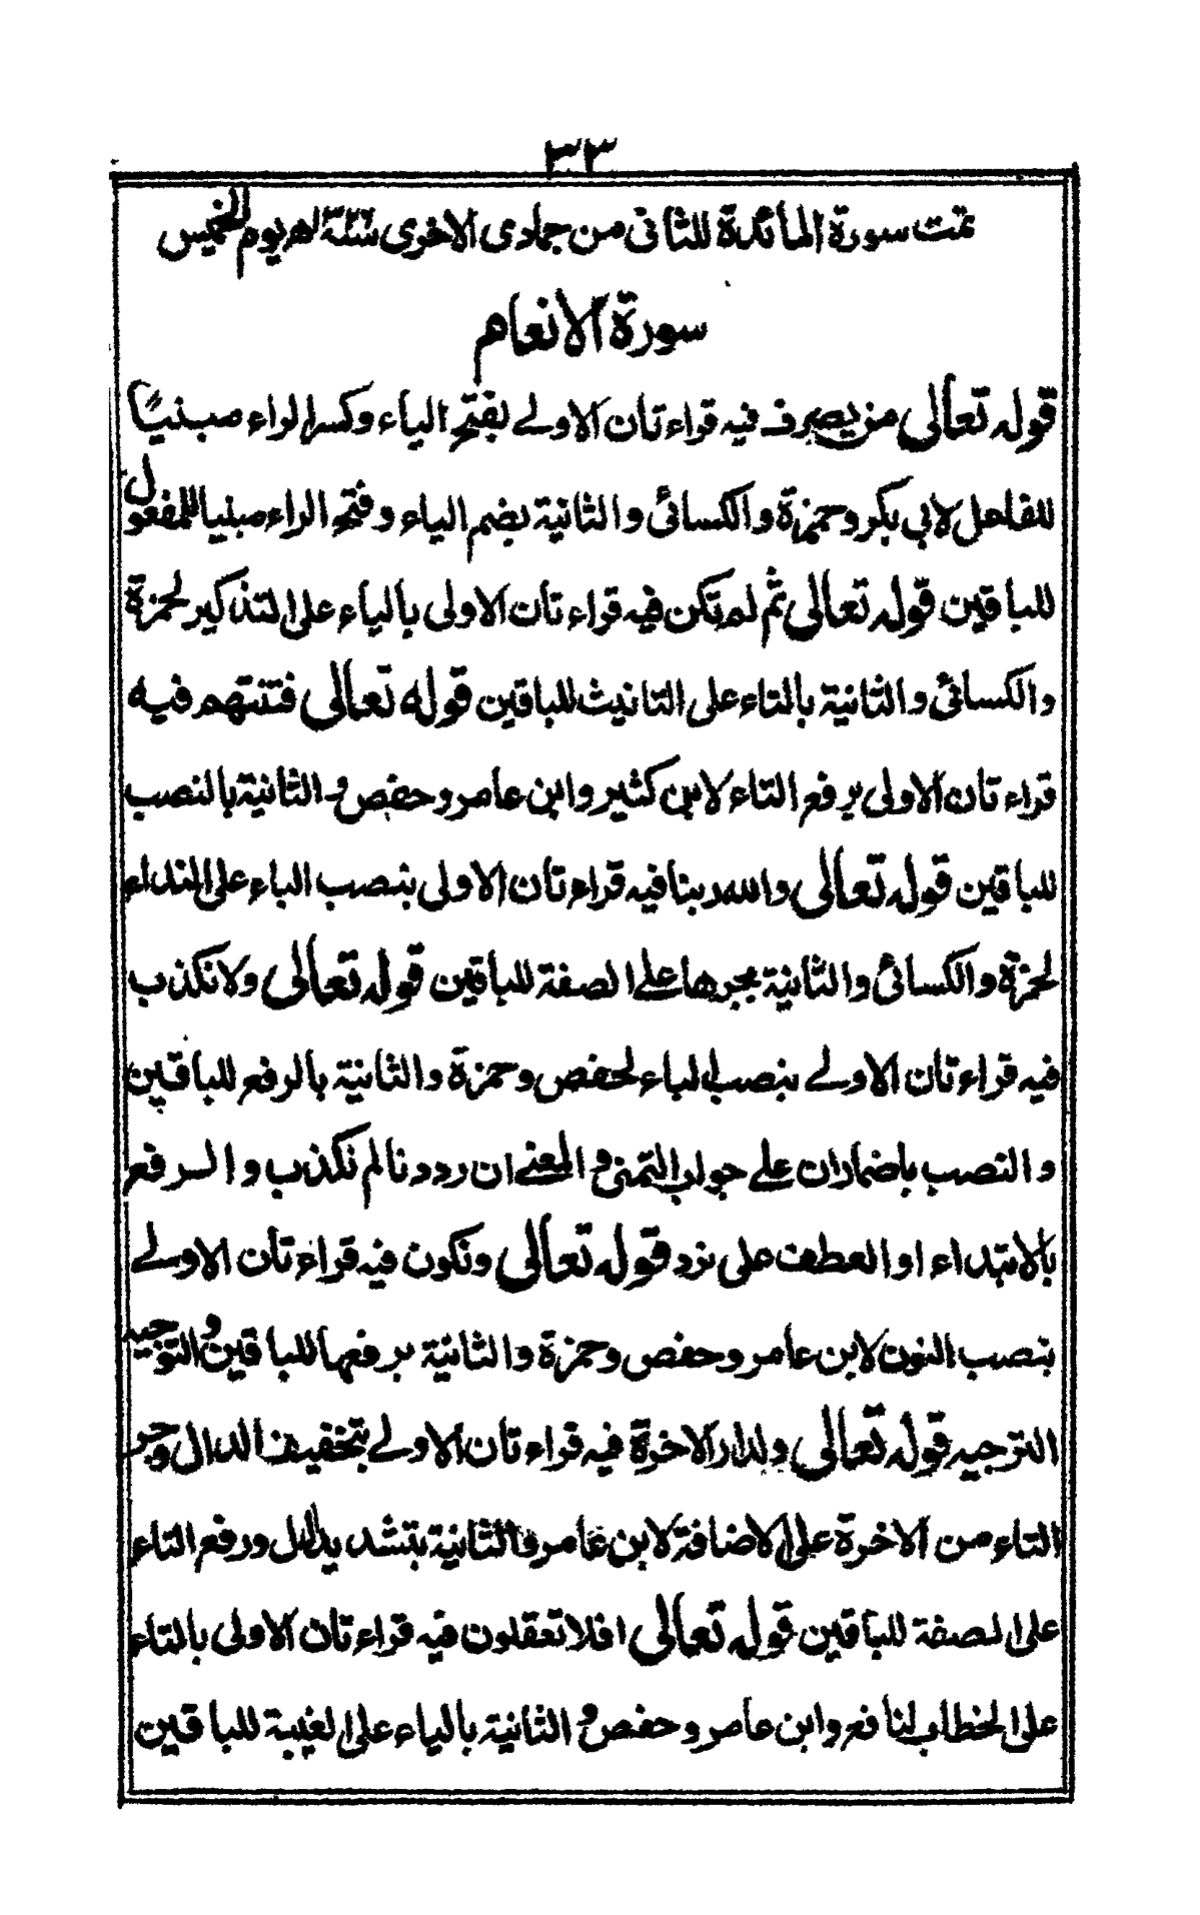 ٣٣
تمت سورة المائدة للثانى من جمادى الاخرى يوم الخميس
سورة الانعام
قوله تعالى من يصرف فيه قراءتان الاولے بفتح الياء وكسرالراء مبنيًا
للفاعل لابى بكر وحمزة والكسائى والثانية بضم الياء وفتح الراء مبنيا للمفعول
للباقين قوله تعالى ثم لم تكن فيه قراءتان الاولى بالياء على التذكير لحمزة
والكسائى والثانية بالتاء على التانيث للباقين قوله تعالى فتنتهم فيه
قراءتان الاولى برفع التاء لابن كثير وابن عامر وحفص والثانية بالنصب
للباقين قوله تعالى والله ربنا فيه قراءتان الاولى بنصب الباء على النداء
لحمزة والكسائى والثانية بجرها على الصفة للباقين قوله تعالى ولا نكذب
فيه قراءتان الاولے بنصب الباء لحفص وحمزة والثانية بالرفع للباقين
والنصب باضمار ان علے جواب التمنى والمعنے ان رددنا لم نكذب والرفع
بالابتداء او العطف على نرد قوله تعالى ونكون فيه قراءتان الاولے
بنصب النون لابن عامر وحفص وحمزة والثانية برفعها للباقين والتوجيه
التوجيه قوله تعالى ولدار الاخرة فيه قراءتان الاولے بتخفيف الدال وجر
التاء من الاخرة على الاضافة لابن عامر والثانية بتشديد الدال ورفع التاء
على الصفة للباقين قوله تعالى افلا تعقلون فيه قراءتان الاولى بالتاء
على الخطاب لنافع وابن عامر وحفص والثانية بالياء على الغيبة للباقين